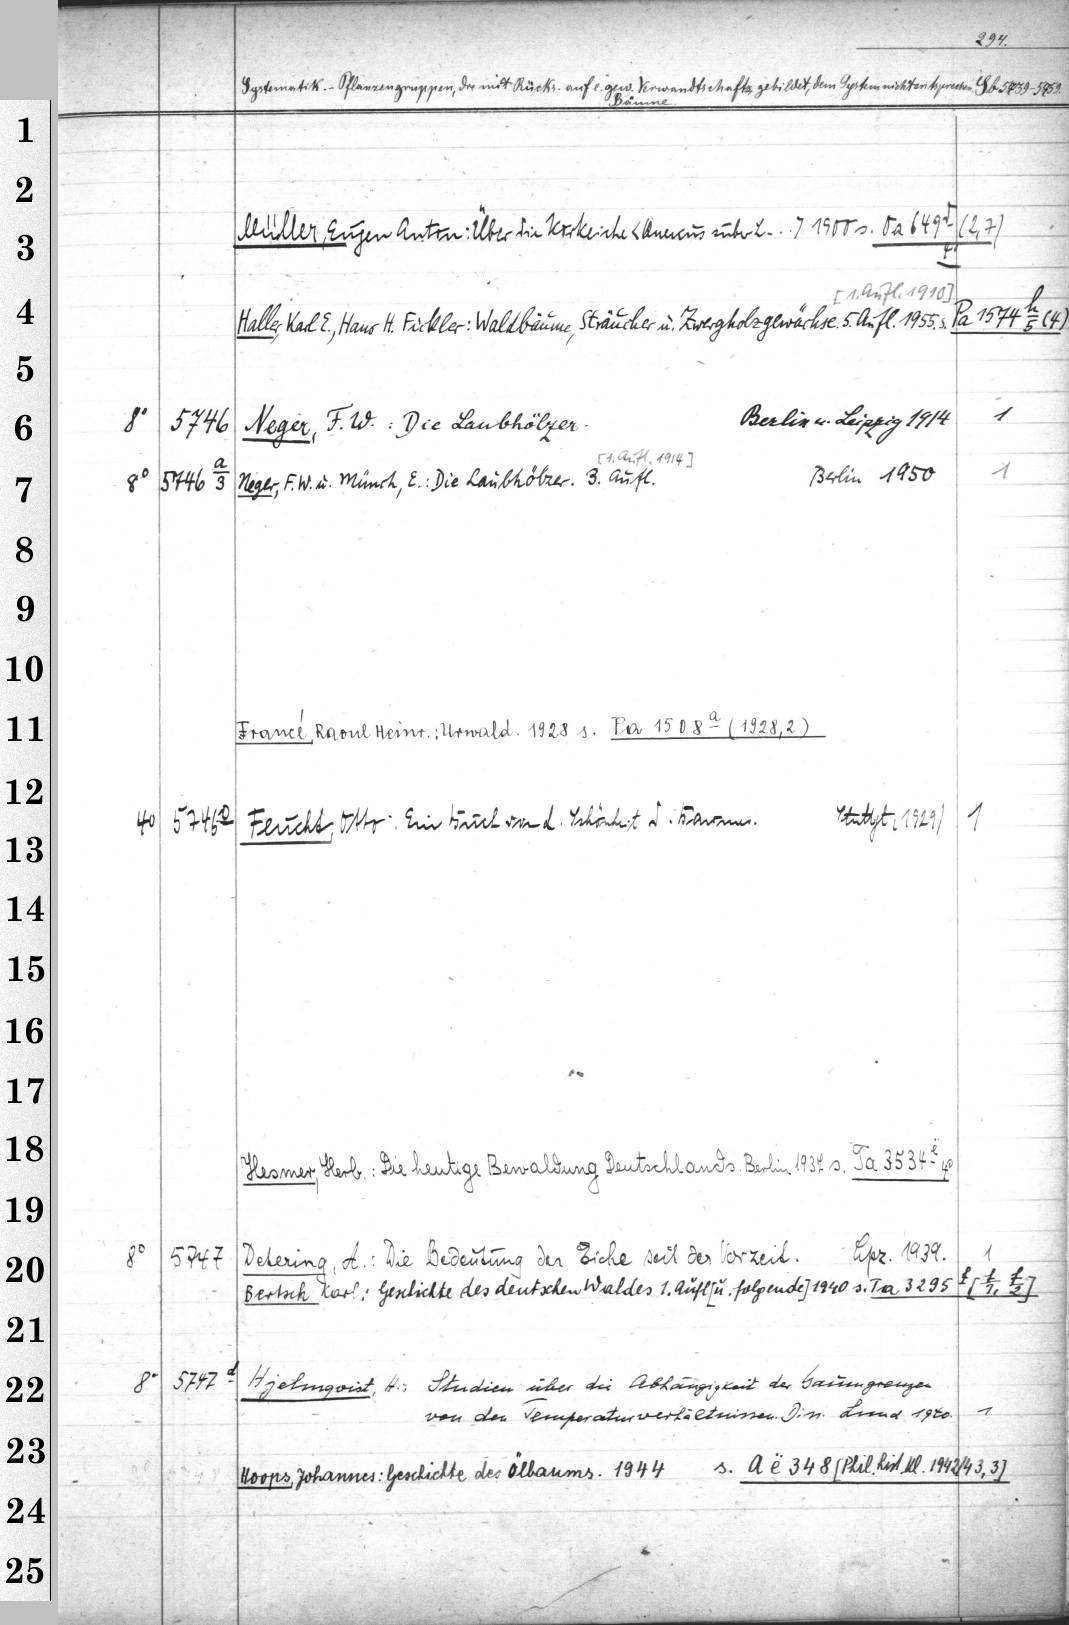 294.
Systematik. - Pflanzengruppen, die mit Rücks. auf e. gew. Verwandtschaft gebildet, dem System nicht entsprechen. Sb 5739-5759.
Bäume
1
2
3 Müller, Eugen Anton: Über die Korkeiche (Quercus suber L. . .) 1900 s. Oa 649 (2,7)
[1. Aufl. 1910]
4 Haller, Karl E., Hans H. Fickler: Waldbäume, Sträucher u. Zwergholzgewächse. 5. Aufl. 1955. s. Pa 1574 h/5 (4)
5
6 8° 5746 Neger, F. W. : Die Laubhölzer. Berlin u. Leipzig 1914 1
[1. Aufl. 1914]
7 8° 5746 a/3 Neger, F. W. u. Münch, E.: Die Laubhölzer. 3. Aufl. Berlin 1950 1
8
9
10
11 Francé, Raoul Heinr.: Urwald. 1928 s. Pa 1508 a (1928,2)
12
4° 5746 a Feucht, Otto: Ein Buch von d. Schönheit d. Baumes. Stuttgt (1929) 1
13
14
15
16
17
18 Hesmer, Herb.: Die heutige Bewaldung Deutschlands. Berlin 1937 s. Ta 3534 ë 4°
19
20 8° 5747 Detering, A.: Die Bedeutung der Eiche seit der Vorzeit. Lpz. 1939. 1
Bertsch Karl: Geschichte des deutschen Waldes 1. Aufl [u. folgende] 1940 s. Ta 3295 f [f/1, f/2]
21
22 8° 5747 d Hjelmqvist, H.: Studien über die Abhängigkeit der Baumgrenzen
von den Temperaturverhältnissen. Diss. Lund 1940. 1
23 Hoops, Johannes: Geschichte des Ölbaums. 1944 s. Aë 348 [Phil. hist. Kl. 1942/43, 3]
24
25